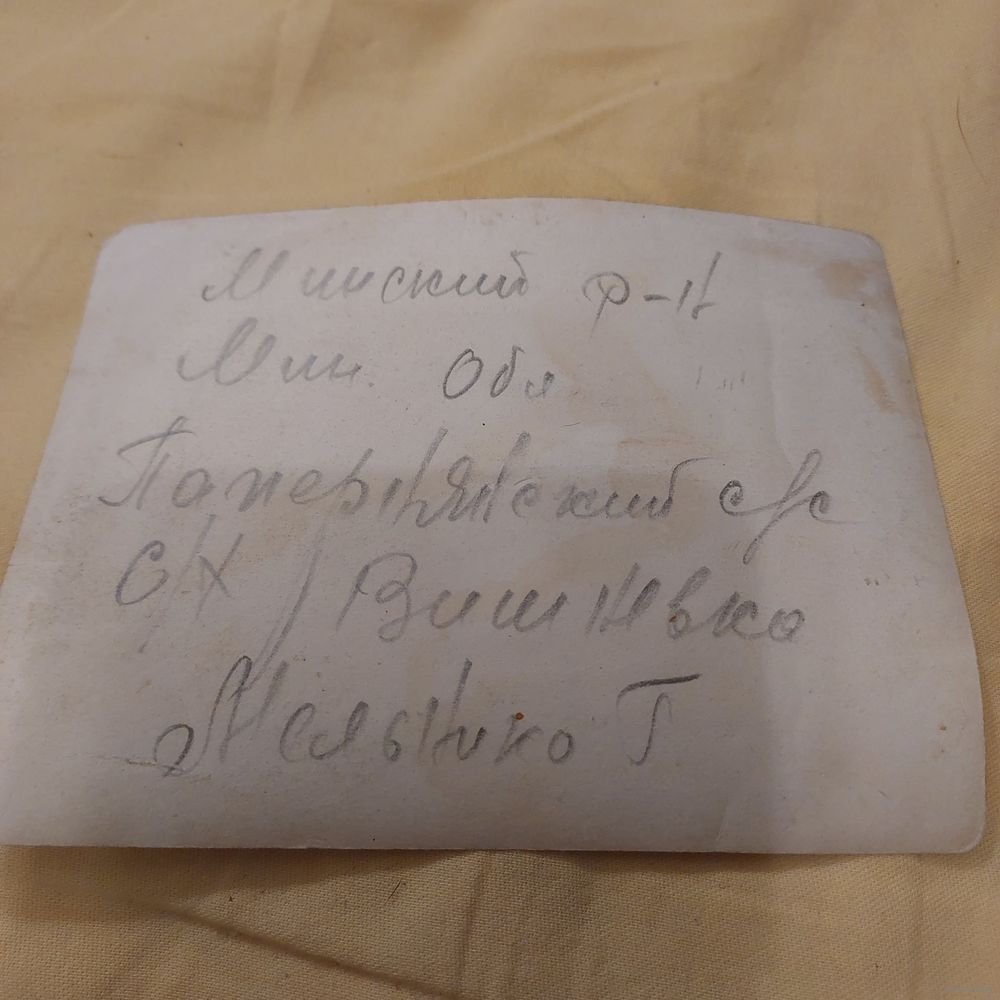 Минский р-н
Мин. Обл
Папернянский с/с
с/х Вишневка
Мельнико Г